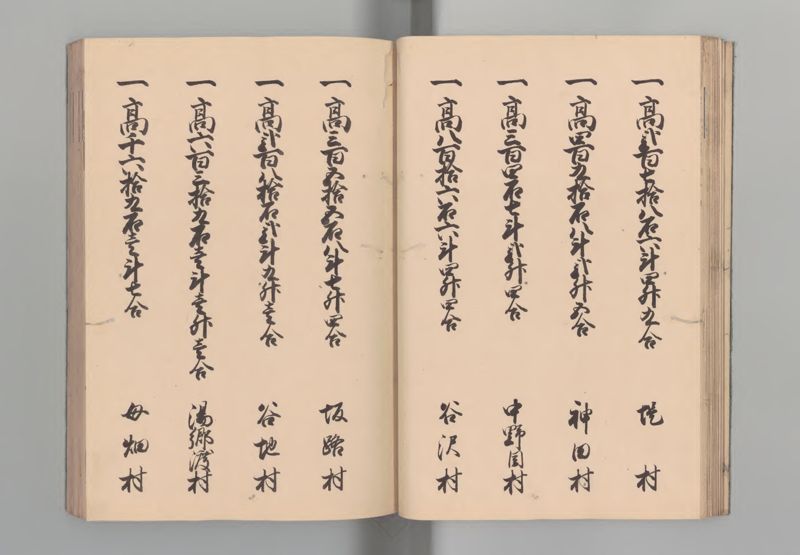 一高弐百七拾八石六斗四升九合 堤村
一高四百九拾石八斗弐升五合 神田村
一高三百四石七斗弐升四合 中野目村
一高八百拾六石六斗四升四合 谷沢村
一高三百五拾五石八斗七升四合 坂路村
一高弐百八拾石弐斗九升壱合 谷地村
一高六百三拾九石壱斗壱升壱合 湯郷渡村
一高千六拾九石壱斗七合 母畑村